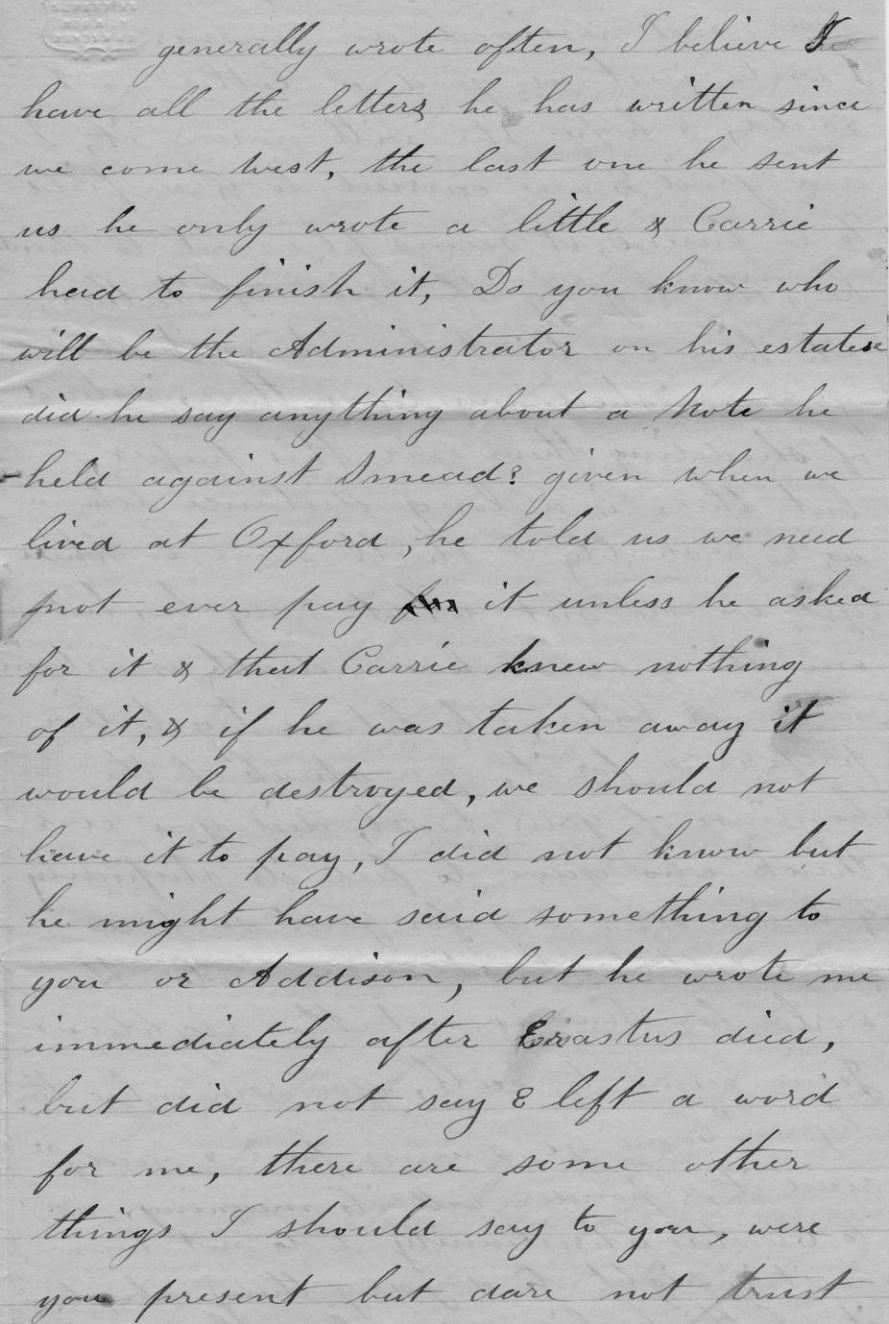 generally wrote often, I believe I
have all the letters he has written since
we come west, the last one he sent
us he only wrote a little & Carrie
had to finish it, Do you know who
will be the Administrator on his estate
did he say anything about a Note he
held against Smead? given when we
lived at Oxford, he told us we need
not ever pay it unless he asked
for it & that Carrie knew nothing
of it, & if he was taken away it
would be destroyed, we should not
have it to pay, I did not know but
he might have said something to
you or Addison, but he wrote me
immediately after Erastus died,
but did not say E left a word
for me, there are some other
things I should say to you, were
you present but dare not trust